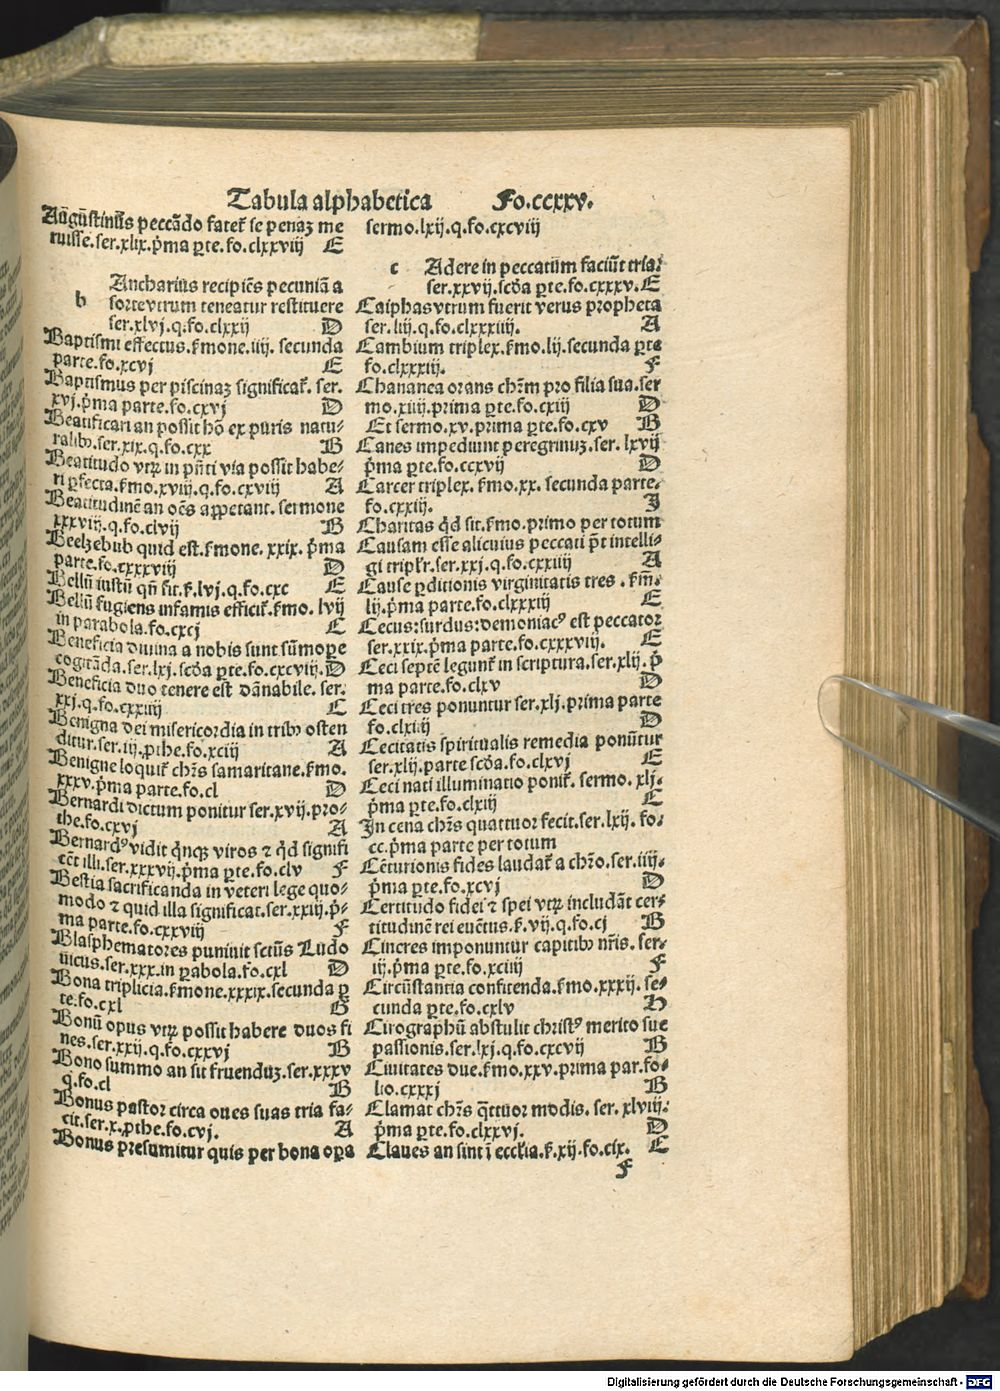 Tabula alphabetica Fo.ccxxv.
Augustinus peccãdo fatet᷑ se penaȝ me
ruisse.ser.xlix.p̃ma ꝑte.fo.clxxviij E
b
Ancharius recipiẽs pecuniã a
sortevtrum teneatur restituere
ser.xlvj.q.fo.clxxij D
Baptismi effectus.ẜmone.iiij. secunda
parte.fo.xcvj E
Baptismus per piscinaȝ significat᷑. ser.
xvj.p̃ma parte.fo.cxvj D
Beatificari an possit hõ ex puris natu-
ralibꝰ.ser.xix.q.fo.cxx B
Beatitudo vtꝝ in pñti via possit habe-
ri ꝑfecta.ẜmo.xviij.q.fo.cxviij A
Beatitudinẽ an oẽs appetant. sermone
xxxviij.q.fo.clvij B
Beelzebub quid est.ẜmone. xxix. p̃ma
parte.fo.cxxxviij D
Bellũ iustũ qñ sit.ẜ.lvj.q.fo.cxc E
Bellũ fugiens infamis efficit᷑.ẜmo. lvij
in parabola.fo.cxcj C
Beneficia diuina a nobis sunt sũmope
cogitãda.ser.lxj.scd̃a ꝑte.fo.cxcviij.D
Beneficia duo tenere est dãnabile. ser.
xxj.q.fo.cxxiiij C
Benigna dei misericordia in tribꝰ osten
ditur.ser.iij.ꝓthe.fo.xciij A
Benigne loquit᷑ chr̃s samaritane.ẜmo.
xxxv.p̃ma parte.fo.cl D
Bernardi dictum ponitur ser.xvij.pro-
the.fo.cxvj A
Bernardꝰ vidit q̃nqꝫ viros ⁊ q̃d signifi
cẽt illi.ser.xxxvij.p̃ma ꝑte.fo.clv F
Bestia sacrificanda in veteri lege quo-
modo ⁊ quid illa significat.ser.xxiij.p̃-
ma parte.fo.cxxviij F
Blasphematores puniuit sctũs Ludo
uicus.ser.xxx.in ꝑabola.fo.cxl D
Bona triplicia.ẜmone.xxxix.secunda ꝑ
te.fo.cxl G
Bonũ opus vtꝝ possit habere duos fi
nes.ser.xxij.q.fo.cxxvj B
Bono summo an sit fruenduȝ.ser.xxxv
q.fo.cl B
Bonus pastor circa oues suas tria fa-
cit.ser.x.ꝓthe.fo.cvj. A
Bonus presumitur quis per bona oꝑa
sermo.lxij.q.fo.cxcviij
c Adere in peccatum faciũt tria.
ser.xxvij.scd̃a ꝑte.fo.cxxxv.E
Caiphas vtrum fuerit verus propheta
ser.liij.q.fo.clxxxiiij. A
Cambium triplex.ẜmo.lij.secunda ꝑte
fo.clxxxiij. F
Chananea orans chr̃m pro filia sua.ser
mo.xiiij.prima ꝑte.fo.cxiij D
Et sermo.xv.prima ꝑte.fo.cxv B
Canes impediunt peregrinuȝ.ser. lxvij
p̃ma ꝑte.fo.ccxvij D
Carcer triplex. ẜmo.xx. secunda parte.
fo.cxxiij. J
Charitas q̃d sit.ẜmo.primo per totum
Causam esse alicuius peccati põt intelli-
gi tripłr.ser.xxj.q.fo.cxxiiij A
Cause ꝑditionis virginitatis tres . ẜm̃.
lij.p̃ma parte.fo.clxxxiij E
Cecus:surdus:demoniacꝰ est peccator
ser.xxix.p̃ma parte.fo.cxxxviij. E
Ceci septẽ legunt᷑ in scriptura.ser.xlij.p̃
ma parte.fo.clxv D
Ceci tres ponuntur ser.xlj.prima parte
fo.clxiiij D
Cecitatis spiritualis remedia ponũtur
ser.xlij.parte scd̃a.fo.clxvj E
Ceci nati illuminatio ponit᷑. sermo. xlj.
p̃ma ꝑte.fo.clxiij C
In cena chr̃s quattuor fecit.ser.lxij. fo.
cc.p̃ma parte per totum
Cẽturionis fides laudat᷑ a chr̃o.ser.iiij.
p̃ma ꝑte.fo.xcvj D
Certitudo fidei ⁊ spei vtꝝ includãt cer-
titudinẽ rei euẽtus.ẜ.vij.q.fo.cj B
Cineres imponuntur capitibꝰ nr̃is. ser-
ij.p̃ma ꝑte.fo.xciiij F
Circũstantia confitenda.ẜmo.xxxij. se-
cunda ꝑte.fo.cxlv H
Cirographũ abstulit christꝰ merito sue
passionis.ser.lxj.q.fo.cxcvij B
Ciuitates due.ẜmo.xxv.prima par.fo-
lio.cxxxj B
Clamat chr̃s q̃ttuor modis. ser. xlviij.
p̃ma ꝑte.fo.clxxvj. D
Claues an sint ĩ ecclĩa.ẜ.xij.fo.cix. E
F
Digitalisierung gefördert durch die Deutsche Forschungsgemeinschaft - DFG